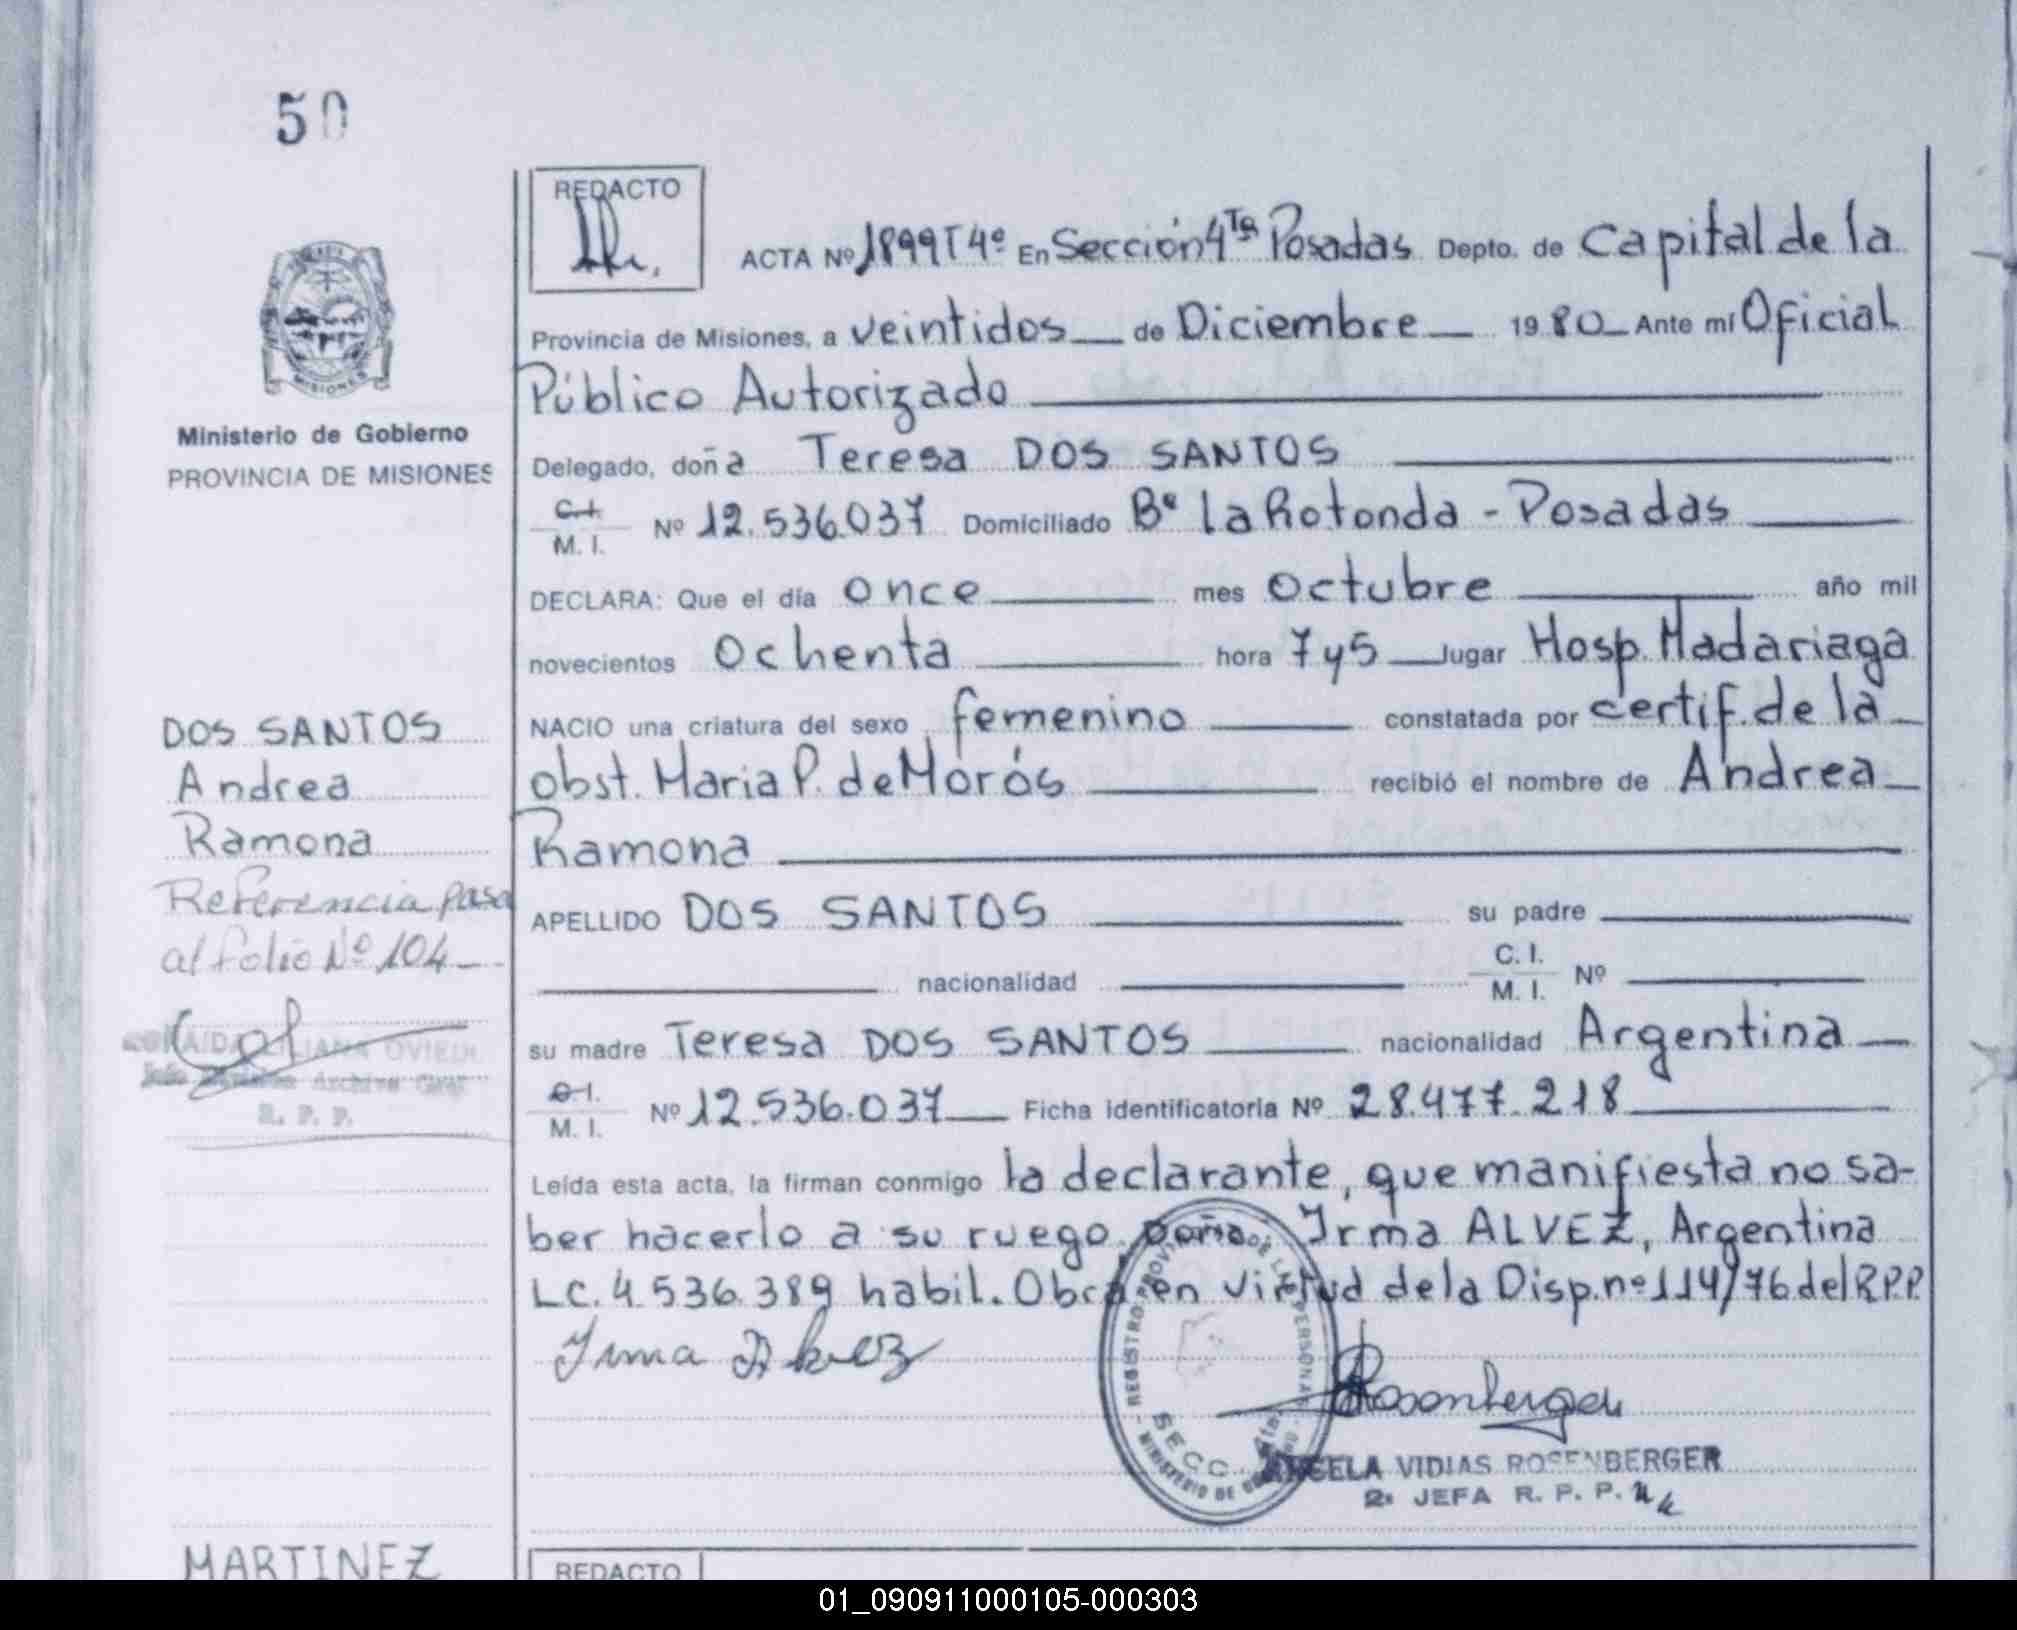 50
REDACTO
ACTA Nº 1899 T 4º En Sección 4ta Posadas Depto. de Capital de la
Provincia de Misiones, a veintidos de Diciembre 1980 Ante mí Oficial
Público Autorizado
Delegado, doña Teresa DOS SANTOS
C.I. M. I. Nº 12.536.037 Domiciliado Bº La Rotonda - Posadas
DECLARA: Que el día once mes octubre año mil
novecientos ochenta hora 7 y 5 lugar Hosp. Madariaga
NACIO una criatura del sexo femenino constatada por certif. de la
obst. Maria P. de Morós recibió el nombre de Andrea
Ramona
APELLIDO DOS SANTOS su padre
nacionalidad C. I. M. I. Nº
su madre Teresa DOS SANTOS nacionalidad Argentina
C.I. M. I. Nº 12.536.037 Ficha identificatoria Nº 28.477.218
Leída esta acta, la firman conmigo la declarante, que manifiesta no sa-
ber hacerlo a su ruego, doña. Irma ALVEZ, Argentina
LC. 4.536.389 habil. Obra en virtud de la Disp. nº 114/76 del R.P.P.
Irma Alvez
Rosenberger
ANGELA VIDIAS ROSENBERGER
2ª JEFA R. P. P.
REGISTRO PROV. DE L PERSONA
SECC. 4ta
MINISTERIO DE
MISIONES
Ministerio de Gobierno
PROVINCIA DE MISIONES
DOS SANTOS
Andrea
Ramona
Referencia pasa
al folio Nº 104
LILIANA OVIEDO
Archivo Gral
R. P. P.
MARTINEZ
REDACTO
01_090911000105-000303